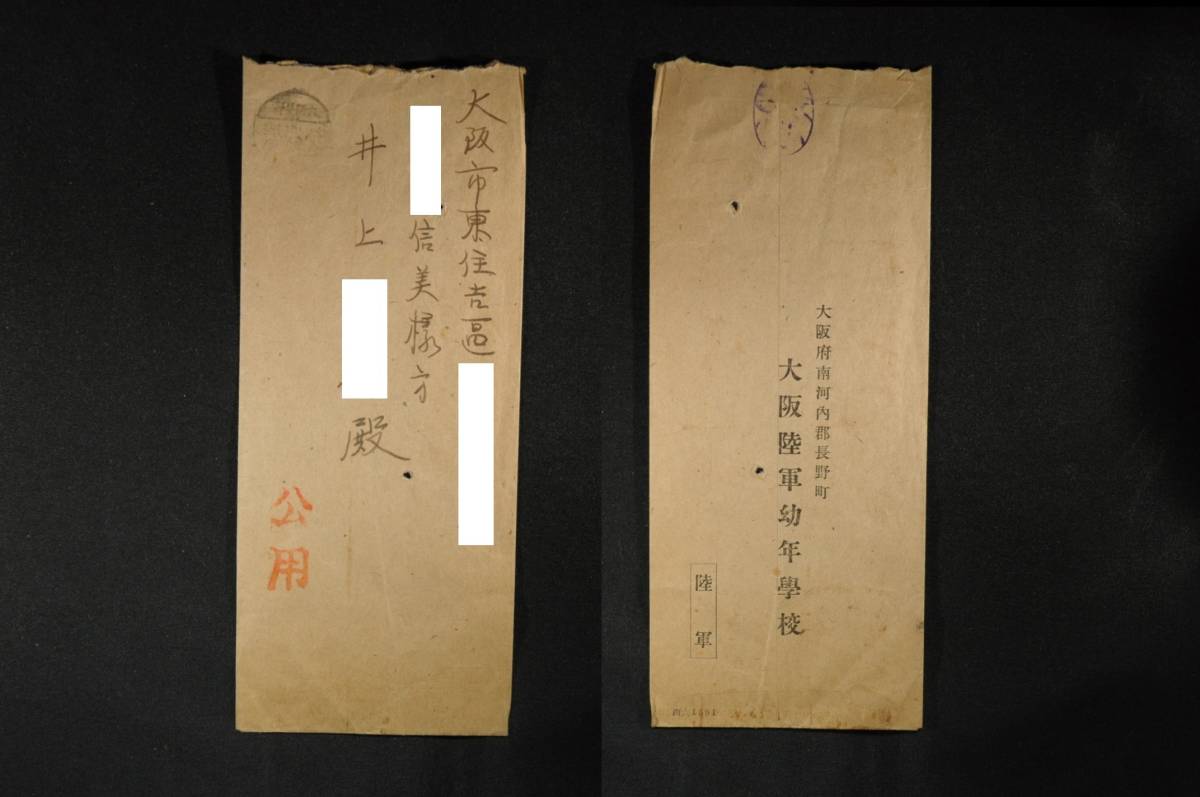 大阪市東住吉區
信美樣方
井上
殿
公用
大阪府南河內郡長野町
大阪陸軍幼年學校
陸軍